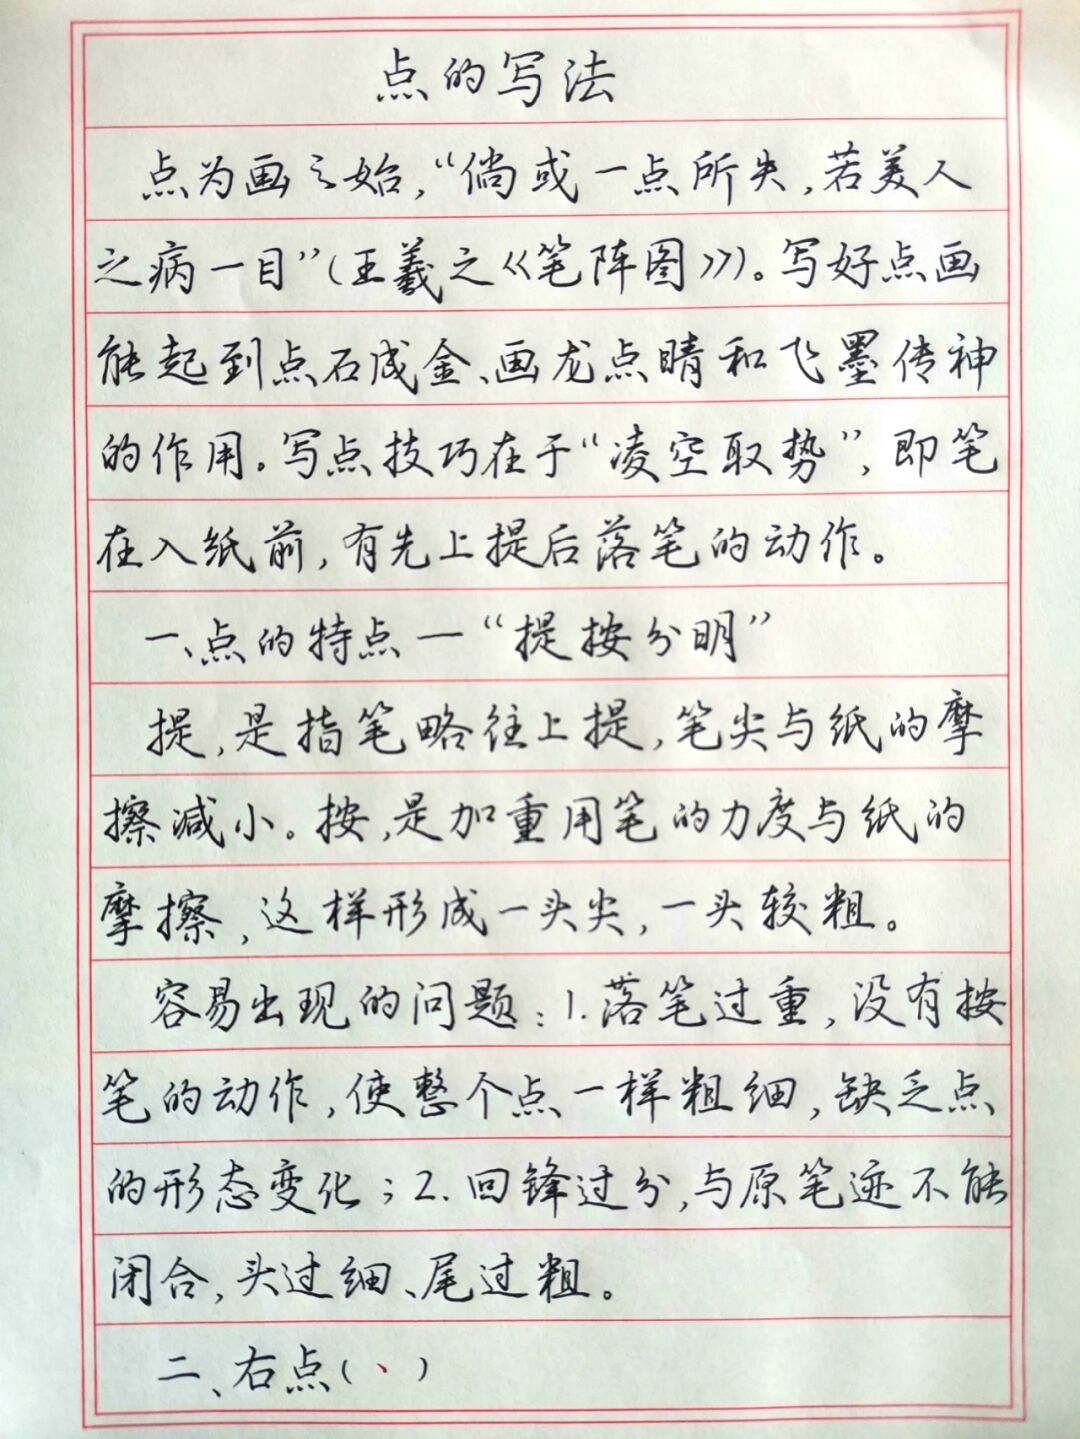 点的写法
点为画之始，“倘或一点所失，若美人
之病一目”(王羲之《笔阵图》)。写好点画
能起到点石成金、画龙点睛和飞墨传神
的作用。写点技巧在于“凌空取势”，即笔
在入纸前，有先上提后落笔的动作。
一、点的特点—“提按分明”
提，是指笔略往上提，笔尖与纸的摩
擦减小。按，是加重用笔的力度与纸的
摩擦，这样形成一头尖，一头较粗。
容易出现的问题：1.落笔过重，没有按
笔的动作，使整个点一样粗细，缺乏点
的形态变化；2.回锋过分，与原笔迹不能
闭合，头过细、尾过粗。
二、右点(丶)